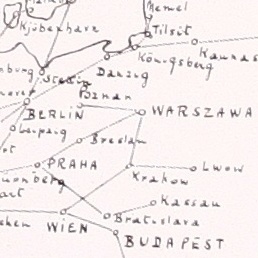 Memel
Kjöbenhavn
Tilsit
Kaunas
Königsberg
Danzig
Stettin
Poznan
BERLIN
WARSZAWA
Leipzig
Breslau
PRAHA
Krakow
Lwow
Kassau
Bratislava
WIEN
BUDAPEST